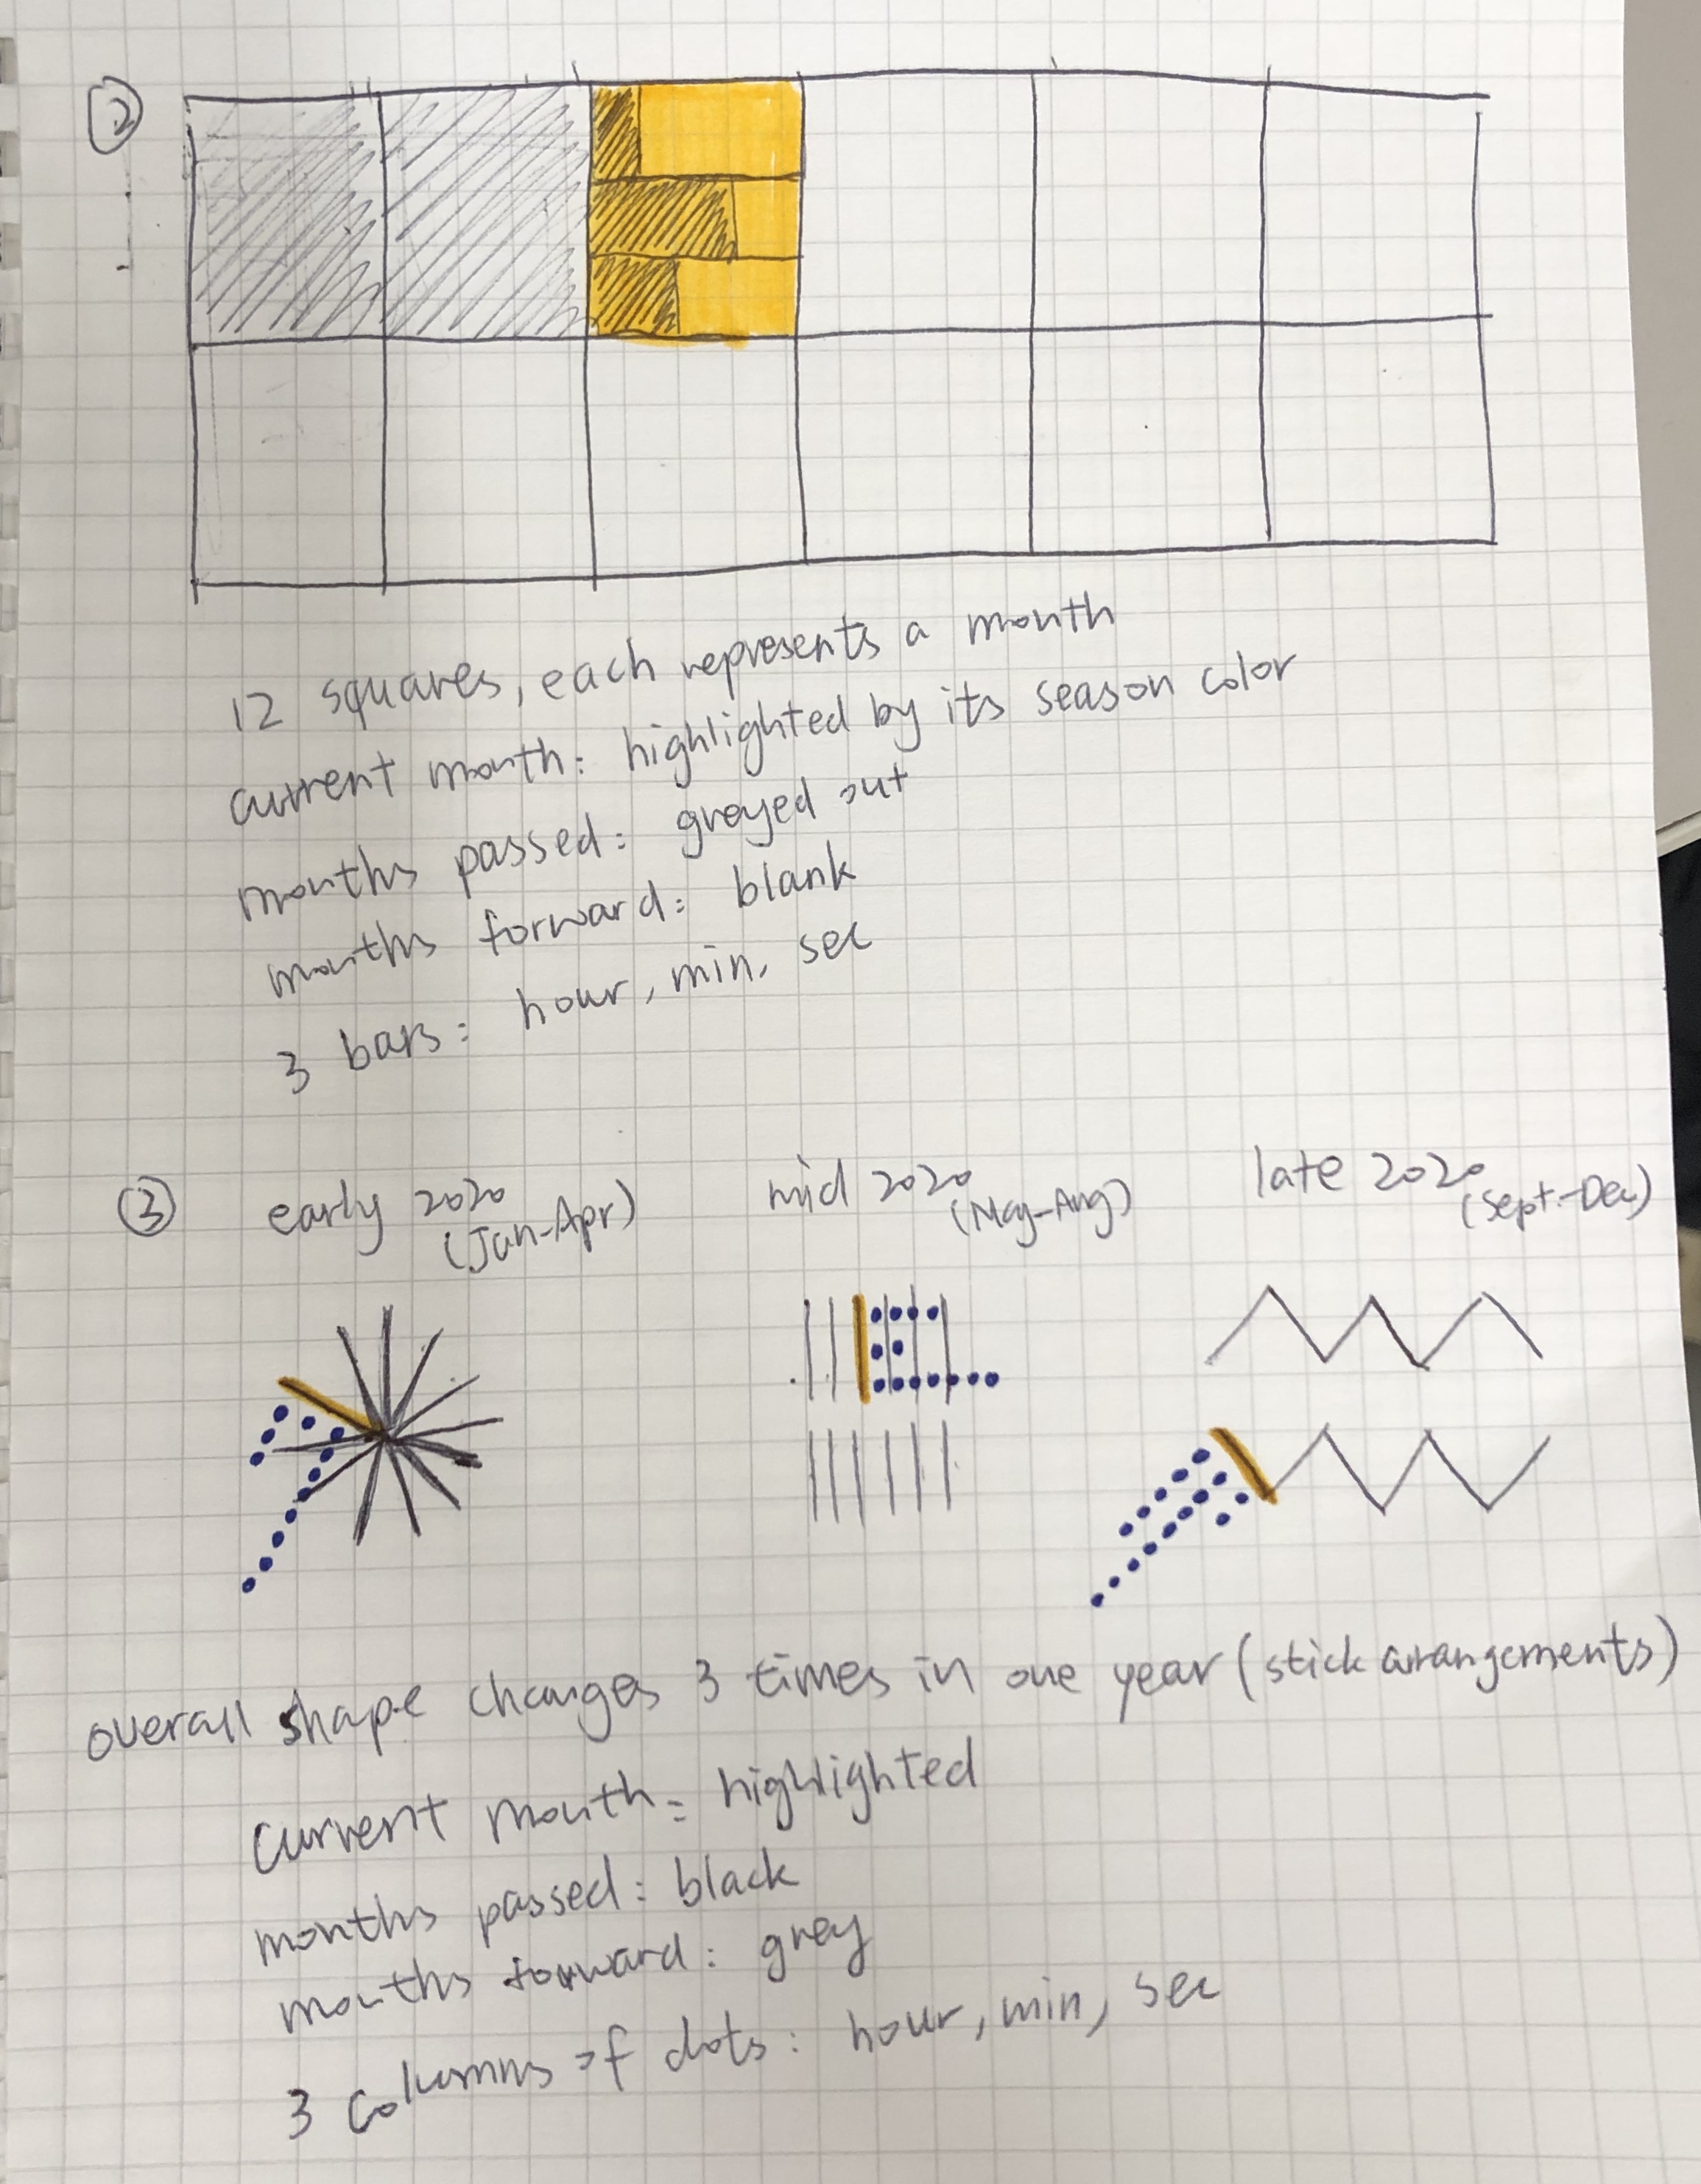 ②
12 squares, each represents a month
current month: highlighted by its season color
months passed: greyed out
months forward: blank
3 bars: hour, min, sec
③ early 2020 (Jan-Apr)
mid 2020 (May-Aug)
late 2020 (Sept-Dec)
overall shape changes 3 times in one year (stick arrangements)
Current month = highlighted
months passed: black
months forward: grey
3 columns of dots: hour, min, sec